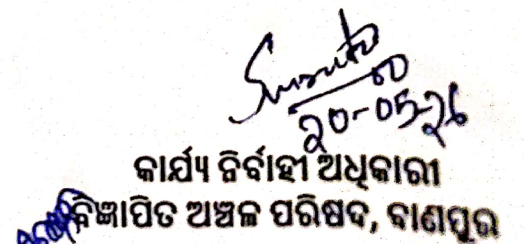 20-05-26
କାର୍ଯ୍ୟ ନିର୍ବାହୀ ଅଧିକାରୀ
ବିଜ୍ଞାପିତ ଅଞ୍ଚଳ ପରିଷଦ, ବାଣପୁର